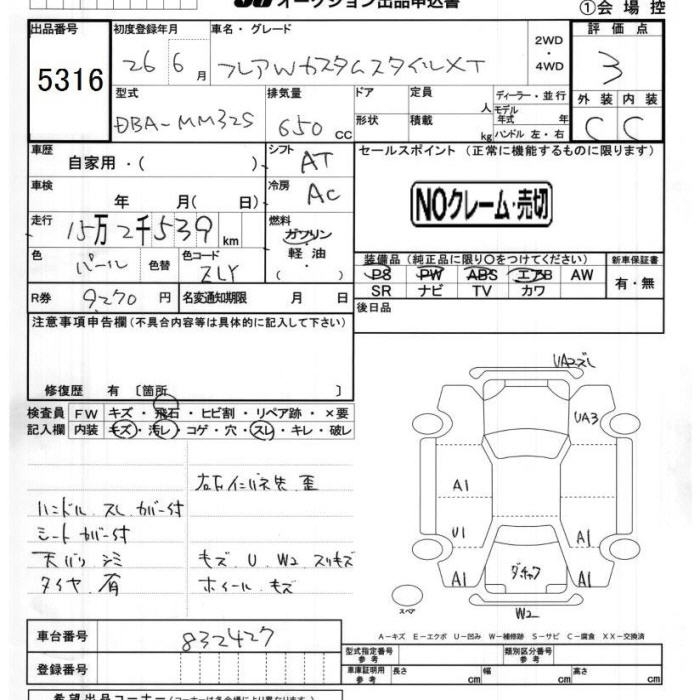 オークション出品申込書
①会場控
出品番号 初度登録年月 車名・グレード 2WD・4WD 評価点
5316 26 6月 フレアWカスタムスタイルXT 3
型式 排気量 ドア 定員 人 ディーラー・並行 外装 内装
DBA-MM32S 650cc 形状 積載 kg モデル年式 年 ハンドル 左・右 C C
車歴 自家用・( ) シフト AT セールスポイント (正常に機能するものに限ります)
車検 年 月( 日) 冷房 AC NOクレーム・売切
走行 15万2千539km 燃料 ガソリン
色 パール 色替 色コード ZLY 軽油・ 装備品(純正品に限り○をつけてください) 新車保証書
PS PW ABS エアB AW 有・無
SR ナビ TV カワ
R券 9270円 名変通知期限 月 日 後日品
注意事項申告欄(不具合内容等は具体的に記入して下さい)
修復歴 有 〔箇所 〕
検査員 FW キズ・飛石・ヒビ割・リペア跡・×要
記入欄 内装 キズ・汚レ・コゲ・穴・スレ・キレ・破レ
ハンドル スレ カバー付
シートカバー付
天バリ シミ キズ U W2 スリキズ
タイヤ 有 ホイール キズ
UA2ズレ
UA3
A1
U1 A1
A1 A1
スペア W2
A-キズ E-エクボ U-凹み W-補修跡 S-サビ C-腐食 XX-交換済
車台番号 832427
型式指定番号 参考 類別区分番号 参考
登録番号 車庫証明用 参考 長さ cm 幅 cm 高さ cm
希望出品コーナー(コーナーは各会場により異なります)